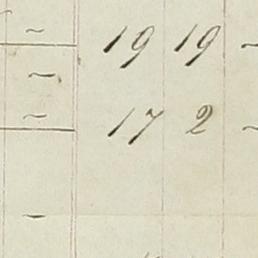 ~ 19 19 ~
~
~ 17 2 ~
~